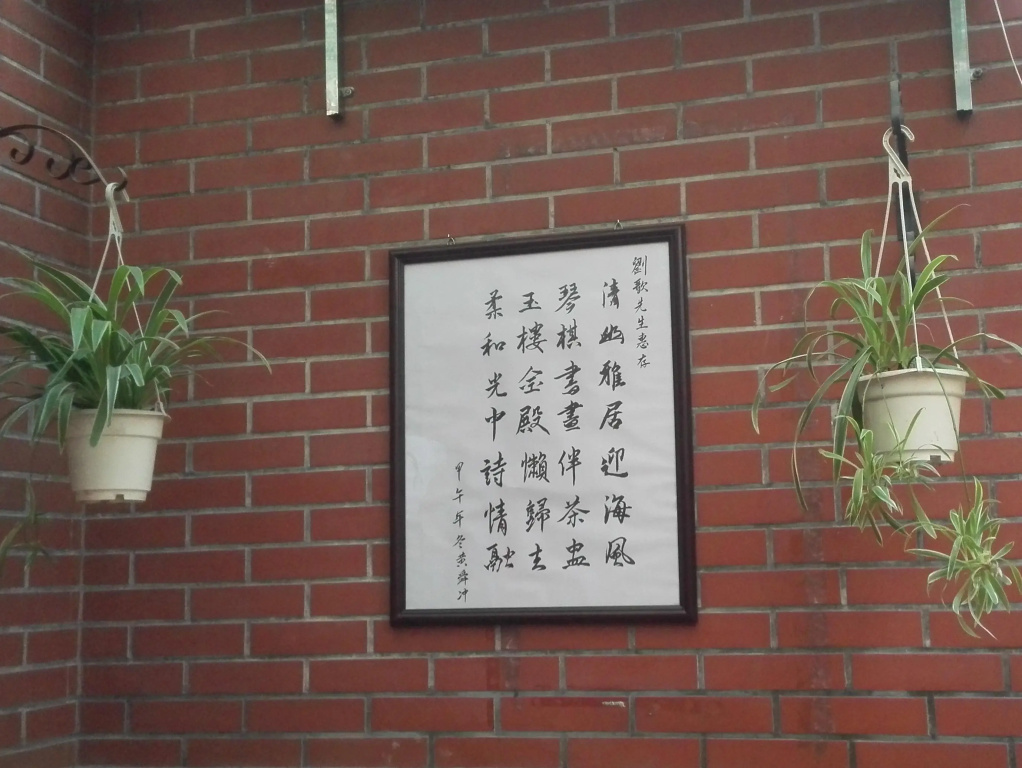 劉歌先生惠存
清幽雅居迎海風
琴棋書畫伴茶盅
玉樓金殿懶歸去
柔和光中詩情融
甲午年冬黃舜冲